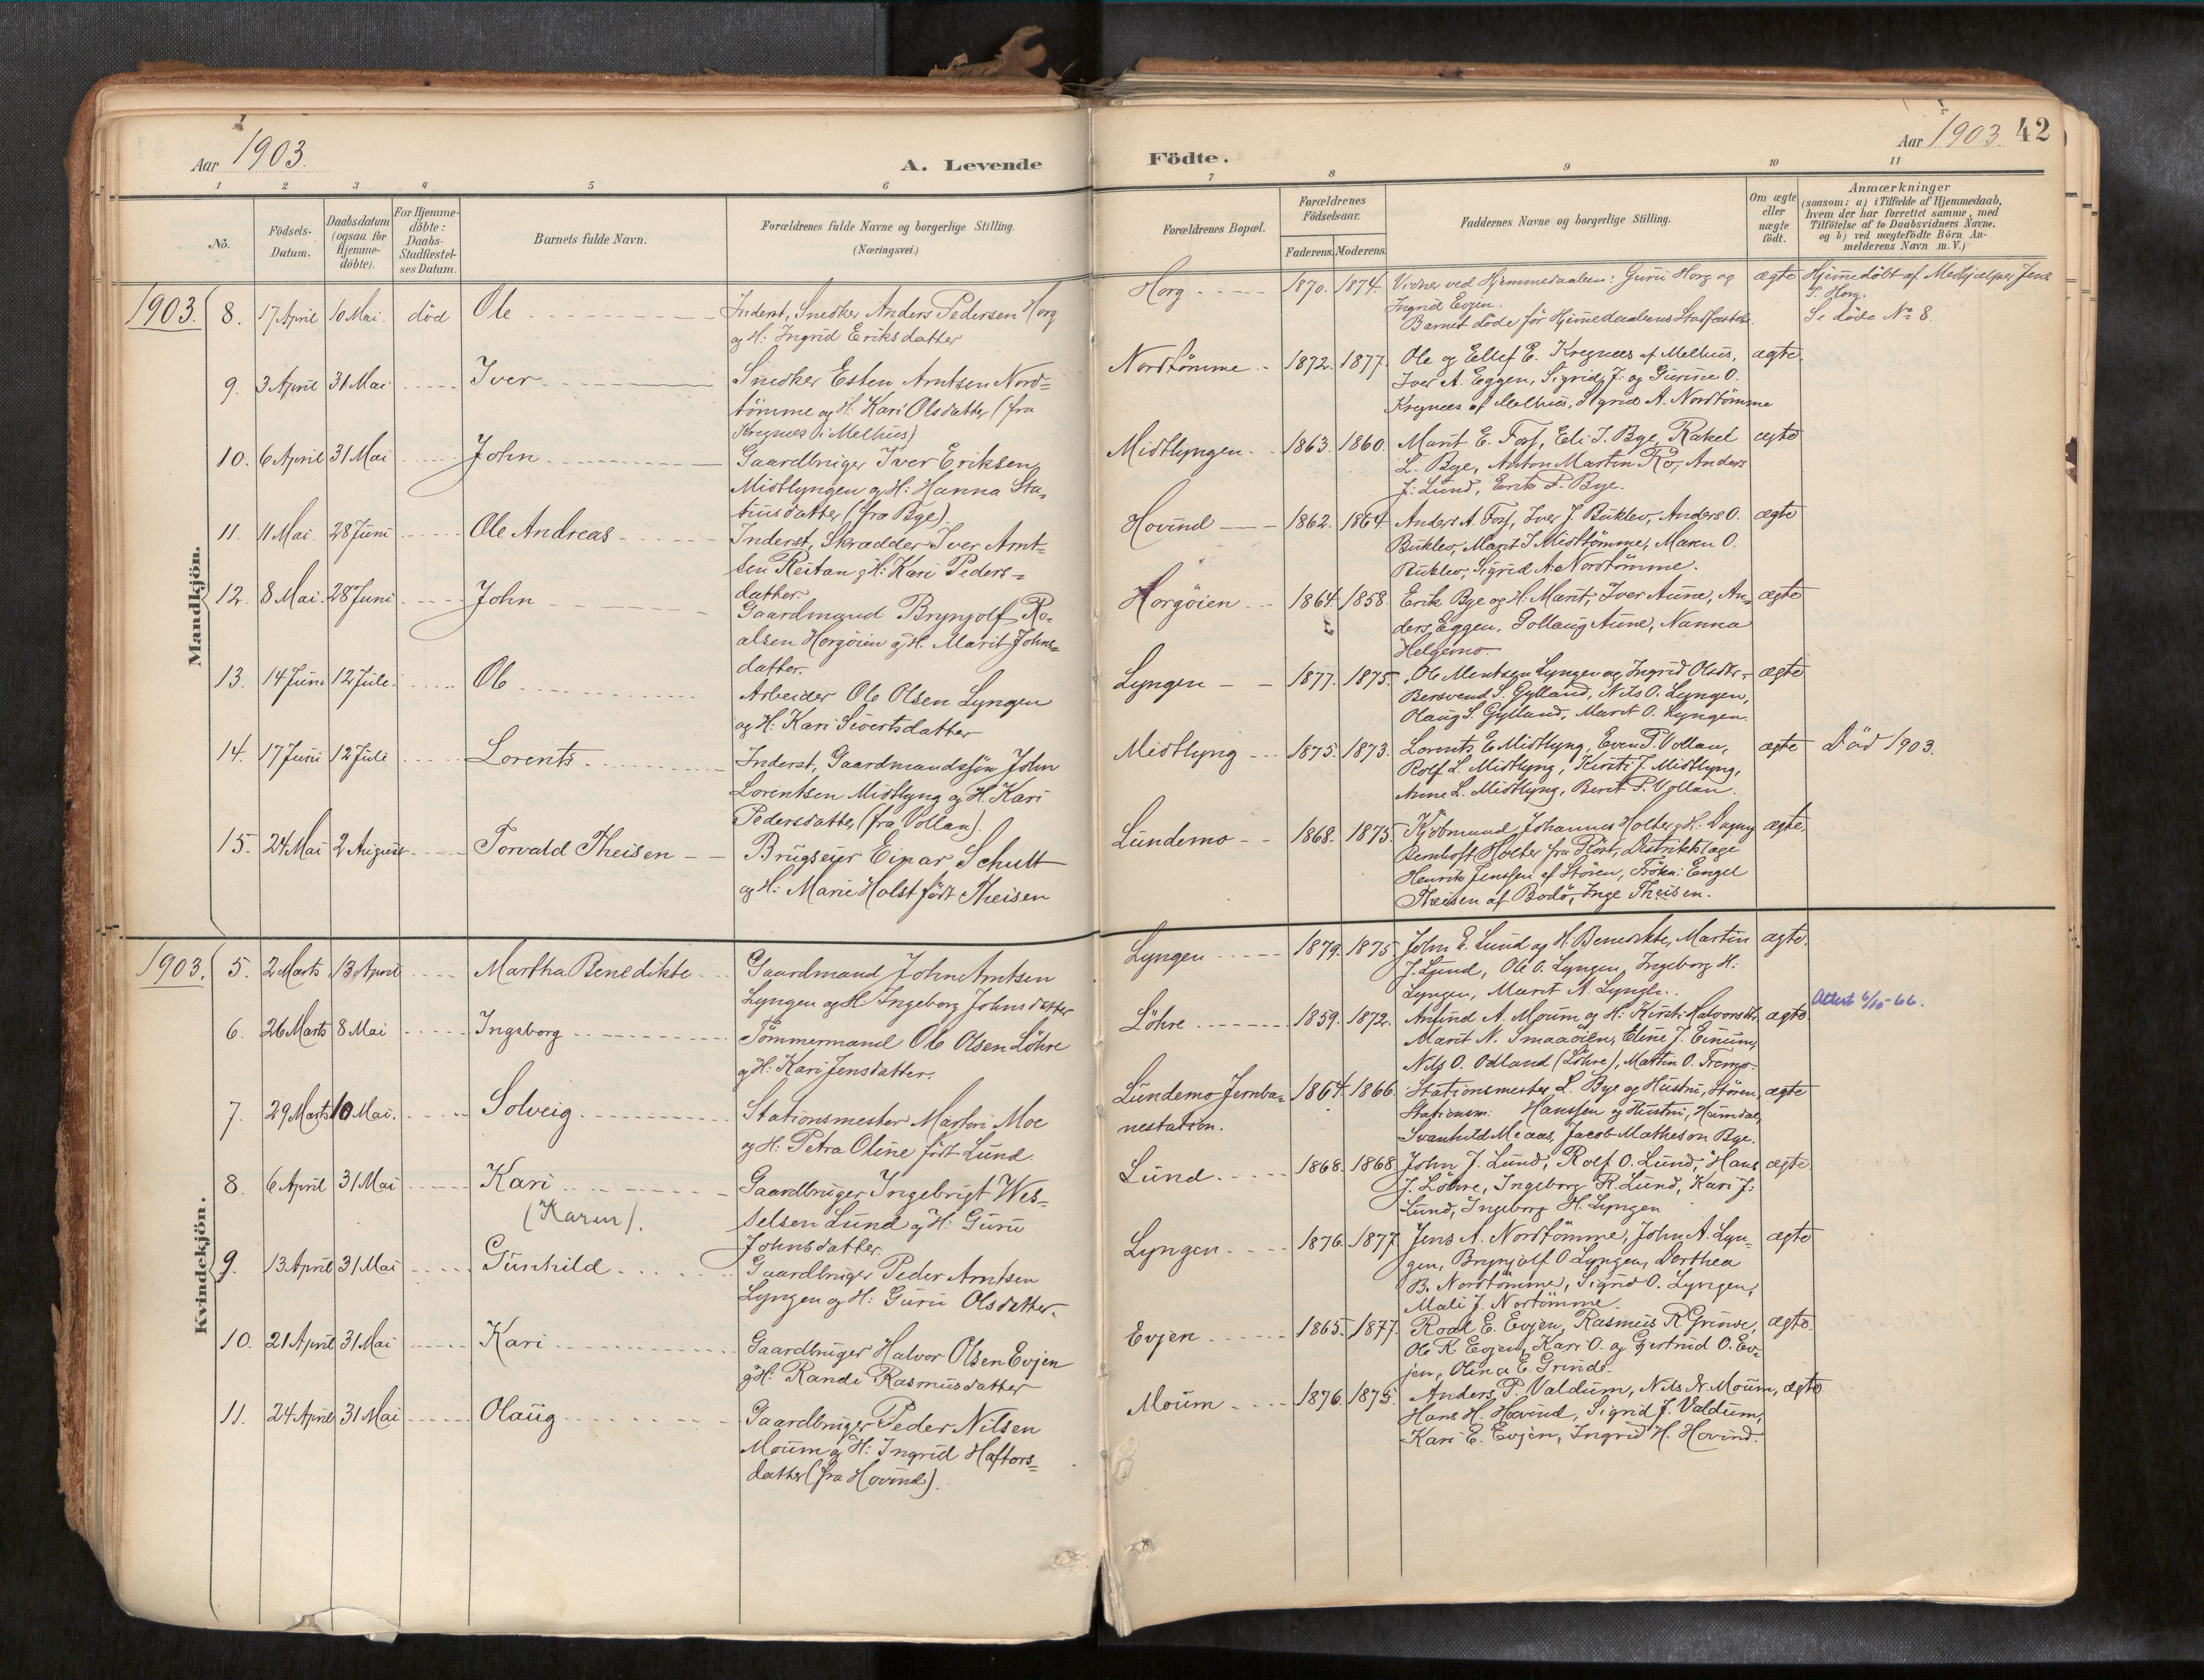 Aar 1903.
A. Levende
Födte.
Aar 1903. 42
1 2 3 4 5 6 7 8 9 10 11
No.
Födsels-
Datum.
Daabsdatum
(ogsaa for
Hjemme-
döbte).
For Hjemme-
döbte:
Daabs-
Stadfæstel-
ses Datum.
Barnets fulde Navn.
Forældrenes fulde Navne og borgerlige Stilling.
(Næringsvei.)
Forældrenes Bopæl.
Forældrenes
Födselsaar.
Faderens. Moderens.
Faddernes Navne og borgerlige Stilling.
Om ægte
eller
uægte
födt.
Anmærkninger
(saasom: a) i Tilfælde af Hjemmedaab,
hvem der har forrettet samme, med
Tilföielse af to Daabsvidners Navne,
og b) ved uægtefödte Börn An-
melderens Navn m. V.)
Mandkjön.
1903. 8. 17 April 10 Mai. död Ole
Inderst, Snedker Anders Pedersen Horg
og H: Ingrid Eriksdatter
Horg 1870. 1874.
Vidner ved Hjemmedaaben: Guru Horg og
Ingrid Evjen.
Barnet döde för Hjemedaabens Stadfæstelse.
ægte
Hjemedöbt af Medhjælper Jens
S. Horg.
Se döde No 8.
9. 3 April 31 Mai Iver
Snedker Esten Arntsen Nord=
tömme og H: Kari Olsdatter (fra
Kregnes i Melhus)
Nordtömme 1872. 1877.
Ole og Ellef E. Kregnes af Melhus,
Iver A. Eggen, Sigrid J. og Gurine O.
Kregnes af Melhus, Sigrid A. Nordtömme
ægte
10. 6 April 31 Mai John
Gaardbruger Iver Eriksen
Midtlyngen og H: Hanna Sta-
tiusdatter (fra Bye).
Midtlyngen 1863. 1860.
Marit E. Foss, Eli J. Bye, Rakel
L. Bye, Anton Martin Ro, Anders
J. Lund, Erik P. Bye.
ægte
11. 11 Mai. 28 Juni Ole Andreas
Inderst, Skrædder Iver Arnt=
sen Reitan og H: Kari Peders=
datter.
Hovind 1862. 1864.
Anders A. Foss, Iver J. Buklev, Anders O.
Buklev, Marit J Midttömme, Maren O.
Buklev, Sigrid A. Nordtömme.
ægte
12. 8 Mai. 28 Juni John
Gaardmand Brynjolf Ro-
alsen Horgöien og H. Marit Johns=
datter.
Horgöien 1864. 1858.
Erik Bye og H. Marit, Iver Aune, An-
ders Eggen, Gollaug Aune, Nanna
Helgemo.
ægte
13. 14 Juni 12 Juli. Ole
Arbeider Ole Olsen Lyngen
og H: Kari Sivertsdatter
Lyngen 1877. 1875.
Ole Mentsen Lyngen og Ingrid Olsdtr.
Bersvend S. Gylland, Nils O. Lyngen,
Olaug S. Gylland, Marit O. Lyngen.
ægte
14. 17 Juni 12 Juli Lorents
Inderst, Gaardmandssön John
Lorentsen Midtlyng og H. Kari
Pedersdatter (fra Vollan).
Midtlyng 1875. 1873.
Lorents E Midtlyng, Even P. Vollan,
Rolf L. Midtlyng, Kirsti J. Midtlyng,
Anne L. Midtlyng, Berit P. Vollan.
ægte
Död 1903.
15. 24 Mai 2 August Torvald Theisen
Brugseier Einar Schult
og H: Marie Holst födt Theisen
Lundemo 1868. 1875.
Kjöbmand Johannes Holter og H: Dagny
Bernhoft Holter fra Rört, Distriktslæge
Henrik Jenssen af Stören, Fröken Engel
Theisen af Bodö, Inge Theisen.
ægte.
Kvindekjön.
1903. 5. 2 Marts 13 April Martha Benedikte
Gaardmand John Arntsen
Lyngen og H Ingeborg Johnsdatter
Lyngen 1879. 1875.
John E. Lund og H. Benedikte, Martin
J. Lund, Ole O. Lyngen, Ingeborg H.
Lyngen, Marit A. Lyngen.
ægte.
6. 26 Marts 8 Mai Ingeborg
Tömmermand Ole Olsen Löhre
og H: Kari Jensdatter.
Löhre 1859. 1872.
Anfind A. Moum og H: Kirsti Halvorsdtr.
Marit N. Smaaöien, Eline J. Einum,
Nils O. Odland (Löhre), Martin O. Tremo.
ægte
Attest 6/10-66.
7. 29 Marts 10 Mai. Solveig
Stationsmester Martin Moe
og H: Petra Oline födt Lund.
Lundemo Jernba-
nestation. 1864. 1866.
Stationsmester L. Bye og Hustru, Stören,
Stationsm. Hanssen og Hustru, Heimdal,
Svanhild Meaas, Jacob Matheson Bye.
ægte
8. 6 April 31 Mai Kari
(Karen).
Gaardbruger Ingebrigt Wes=
selsen Lund og H: Guru
Johnsdatter.
Lund. 1868. 1868.
John J. Lund, Rolf O. Lund, Hans
J. Löhre, Ingeborg R. Lund, Kari J.
Lund, Ingeborg H. Lyngen
ægte
9. 13 April 31 Mai Gunhild
Gaardbruger Peder Arntsen
Lyngen og H: Guru Olsdatter.
Lyngen. 1876. 1877.
Jens A. Nordtömme, John A. Lyn-
gen, Brynjolf O Lyngen, Dorthea
B. Nordtömme, Sigrid O. Lyngen,
Mali J. Nortömme.
ægte
10. 21 April 31 Mai Kari
Gaardbruger Halvor Olsen Evjen
og H: Randi Rasmusdatter
Evjen 1865. 1877.
Roal E. Evjen, Rasmus R Grinde,
Ole R. Evjen, Kari O. og Gjertrud O. Ev-
jen, Olina E. Grinde.
ægte.
11. 24 April 31 Mai Olaug
Gaardbruger Peder Nilsen
Moum og H: Ingrid Haftors=
datter (fra Hovind).
Moum 1876. 1875.
Anders P. Valdum, Nils N. Moum,
Hans H. Hovind, Sigrid J. Valdum,
Kari E. Evjen, Ingrid H. Hovind.
ægte